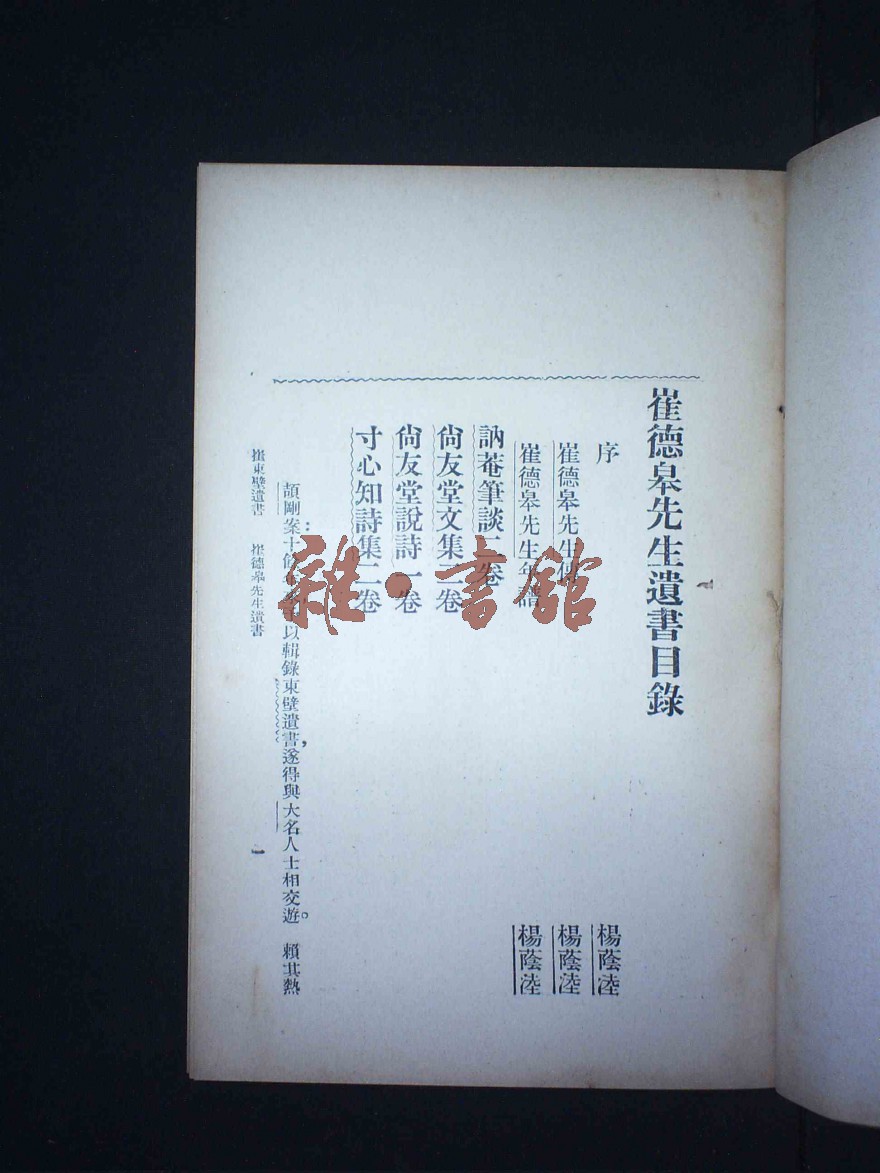 崔德皋先生遺書目錄
序 楊蔭溎
崔德皋先生傳 楊蔭溎
崔德皋先生年譜 楊蔭溎
訥菴筆談二卷
尙友堂文集二卷
尙友堂說詩一卷
寸心知詩集二卷
頡剛案十餘年來以輯錄東壁遺書，遂得與大名人士相交遊。賴其熱
崔東壁遺書 崔德皋先生遺書 一
雜·書館